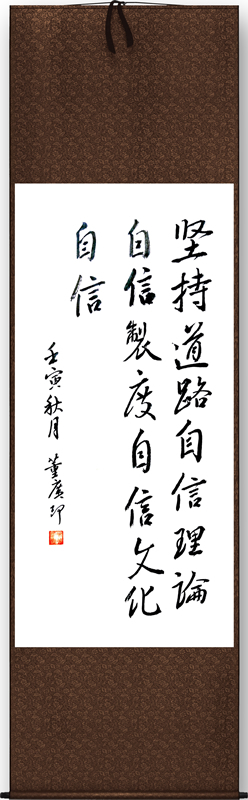 坚持道路自信理論
自信製度自信文化
自信
壬寅秋月 董廣印